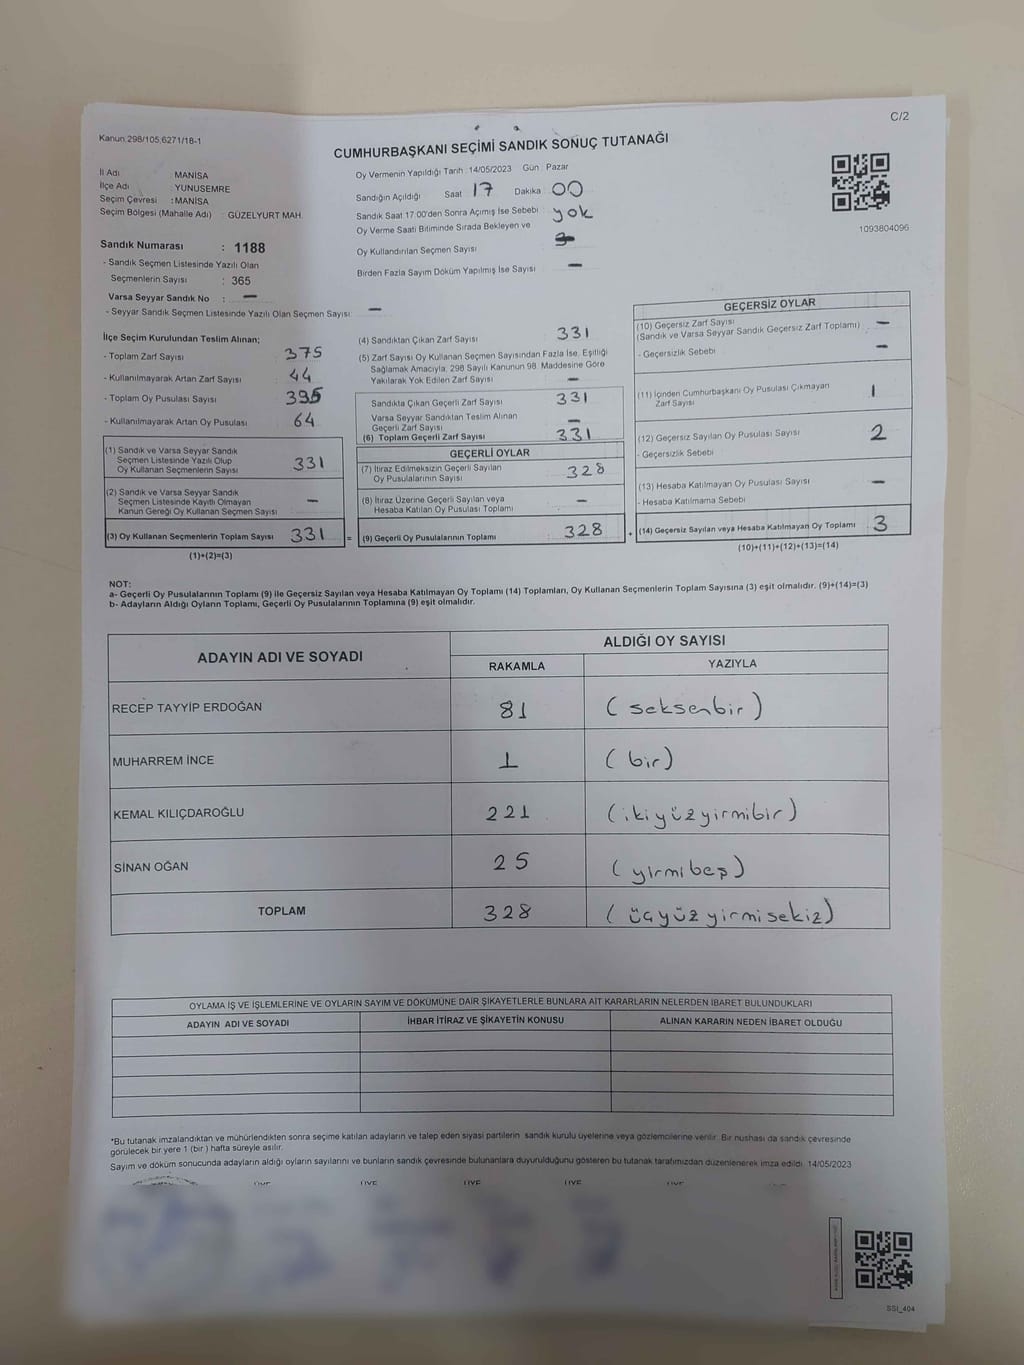 C/2
Kanun 298/105,6271/18-1
CUMHURBAŞKANI SEÇİMİ SANDIK SONUÇ TUTANAĞI
İl Adı : MANİSA
İlçe Adı : YUNUSEMRE
Seçim Çevresi : MANİSA
Seçim Bölgesi (Mahalle Adı) : GÜZELYURT MAH.
Sandık Numarası : 1188
- Sandık Seçmen Listesinde Yazılı Olan
Seçmenlerin Sayısı : 365
Varsa Seyyar Sandık No : —
- Seyyar Sandık Seçmen Listesinde Yazılı Olan Seçmen Sayısı: —
Oy Vermenin Yapıldığı Tarih : 14/05/2023 Gün : Pazar
Sandığın Açıldığı Saat 17 Dakika 00
Sandık Saat 17.00'den Sonra Açımış İse Sebebi : yok
Oy Verme Saati Bitiminde Sırada Bekleyen ve
Oy Kullandırılan Seçmen Sayısı
Birden Fazla Sayım Döküm Yapılmış İse Sayısı : —
1093804096
İlçe Seçim Kurulundan Teslim Alınan;
- Toplam Zarf Sayısı : 375
- Kullanılmayarak Artan Zarf Sayısı : 44
- Toplam Oy Pusulası Sayısı : 395
- Kullanılmayarak Artan Oy Pusulası : 64
(1) Sandık ve Varsa Seyyar Sandık
Seçmen Listesinde Yazılı Olup
Oy Kullanan Seçmenlerin Sayısı 331
(2) Sandık ve Varsa Seyyar Sandık
Seçmen Listesinde Kayıtlı Olmayan
Kanun Gereği Oy Kullanan Seçmen Sayısı —
(3) Oy Kullanan Seçmenlerin Toplam Sayısı 331
(1)+(2)=(3)
(4) Sandıktan Çıkan Zarf Sayısı : 331
(5) Zarf Sayısı Oy Kullanan Seçmen Sayısından Fazla İse, Eşitliği
Sağlamak Amacıyla, 298 Sayılı Kanunun 98. Maddesine Göre
Yakılarak Yok Edilen Zarf Sayısı : —
Sandıkta Çıkan Geçerli Zarf Sayısı : 331
Varsa Seyyar Sandıktan Teslim Alınan
Geçerli Zarf Sayısı : —
(6) Toplam Geçerli Zarf Sayısı : 331
GEÇERLİ OYLAR
(7) İtiraz Edilmeksizin Geçerli Sayılan
Oy Pusulalarının Sayısı : 328
(8) İtiraz Üzerine Geçerli Sayılan veya
Hesaba Katılan Oy Pusulası Toplamı : —
= (9) Geçerli Oy Pusulalarının Toplamı : 328
GEÇERSİZ OYLAR
(10) Geçersiz Zarf Sayısı : —
(Sandık ve Varsa Seyyar Sandık Geçersiz Zarf Toplamı)
- Geçersizlik Sebebi : —
(11) İçinden Cumhurbaşkanı Oy Pusulası Çıkmayan
Zarf Sayısı : 1
(12) Geçersiz Sayılan Oy Pusulası Sayısı : 2
- Geçersizlik Sebebi :
(13) Hesaba Katılmayan Oy Pusulası Sayısı : —
- Hesaba Katılmama Sebebi :
+ (14) Geçersiz Sayılan veya Hesaba Katılmayan Oy Toplamı : 3
(10)+(11)+(12)+(13)=(14)
NOT:
a- Geçerli Oy Pusulalarının Toplamı (9) ile Geçersiz Sayılan veya Hesaba Katılmayan Oy Toplamı (14) Toplamları, Oy Kullanan Seçmenlerin Toplam Sayısına (3) eşit olmalıdır. (9)+(14)=(3)
b- Adayların Aldığı Oyların Toplamı, Geçerli Oy Pusulalarının Toplamına (9) eşit olmalıdır.
ADAYIN ADI VE SOYADI ALDIĞI OY SAYISI
RAKAMLA YAZIYLA
RECEP TAYYİP ERDOĞAN 81 (seksenbir)
MUHARREM İNCE 1 (bir)
KEMAL KILIÇDAROĞLU 221 (ikiyüzyirmibir)
SİNAN OĞAN 25 (yirmibeş)
TOPLAM 328 (üçyüzyirmisekiz)
OYLAMA İŞ VE İŞLEMLERİNE VE OYLARIN SAYIM VE DÖKÜMÜNE DAİR ŞİKAYETLERLE BUNLARA AİT KARARLARIN NELERDEN İBARET BULUNDUKLARI
ADAYIN ADI VE SOYADI İHBAR İTİRAZ VE ŞİKAYETİN KONUSU ALINAN KARARIN NEDEN İBARET OLDUĞU
*Bu tutanak imzalandıktan ve mühürlendikten sonra seçime katılan adayların ve talep eden siyasi partilerin sandık kurulu üyelerine veya gözlemcilerine verilir. Bir nüshası da sandık çevresinde
görülecek bir yere 1 (bir) hafta süreyle asılır.
Sayım ve döküm sonucunda adayların aldığı oyların sayılarını ve bunların sandık çevresinde bulunanlara duyurulduğunu gösteren bu tutanak tarafımızdan düzenlenerek imza edildi. 14/05/2023
ÜYE ÜYE ÜYE ÜYE ÜYE
SSI_404